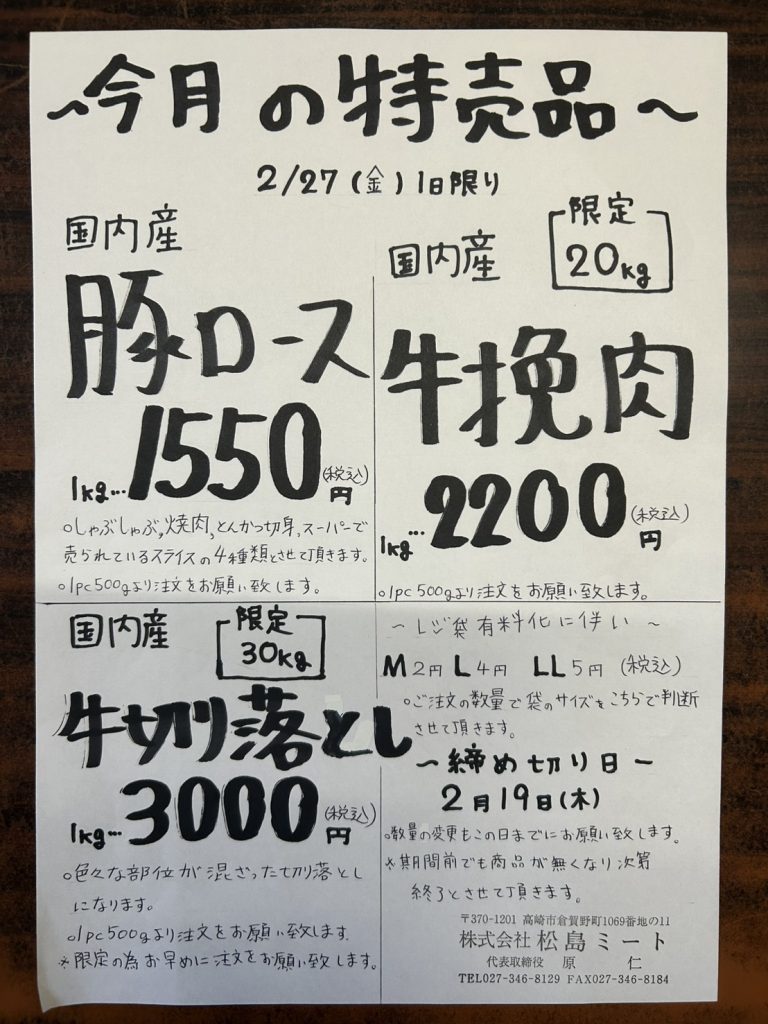 ~今月の特売品~
2/27(金)1日限り
国内産
豚ロース
1kg…1550円(税込)
○しゃぶしゃぶ,焼肉,とんかつ切身,スーパーで
売られているスライスの4種類とさせて頂きます。
○1pc500gより注文をお願い致します。
国内産
限定
20kg
牛挽肉
1kg…2200円(税込)
○1pc500gより注文をお願い致します。
国内産
限定
30kg
牛切り落とし
1kg…3000円(税込)
○色々な部位が混ざった切り落とし
になります。
○1pc500gより注文をお願い致します.
※限定の為お早めに注文をお願い致します。
~レジ袋有料化に伴い~
M2円 L4円 LL5円 (税込)
○ご注文の数量で袋のサイズをこちらで判断
させて頂きます。
~締め切り日~
2月19日(木)
○数量の変更もこの日までにお願い致します。
※期間前でも商品が無くなり次第
終了とさせて頂きます。
〒370-1201 高崎市倉賀野町1069番地の11
株式会社 松島ミート
代表取締役 原 仁
TEL027-346-8129 FAX027-346-8184